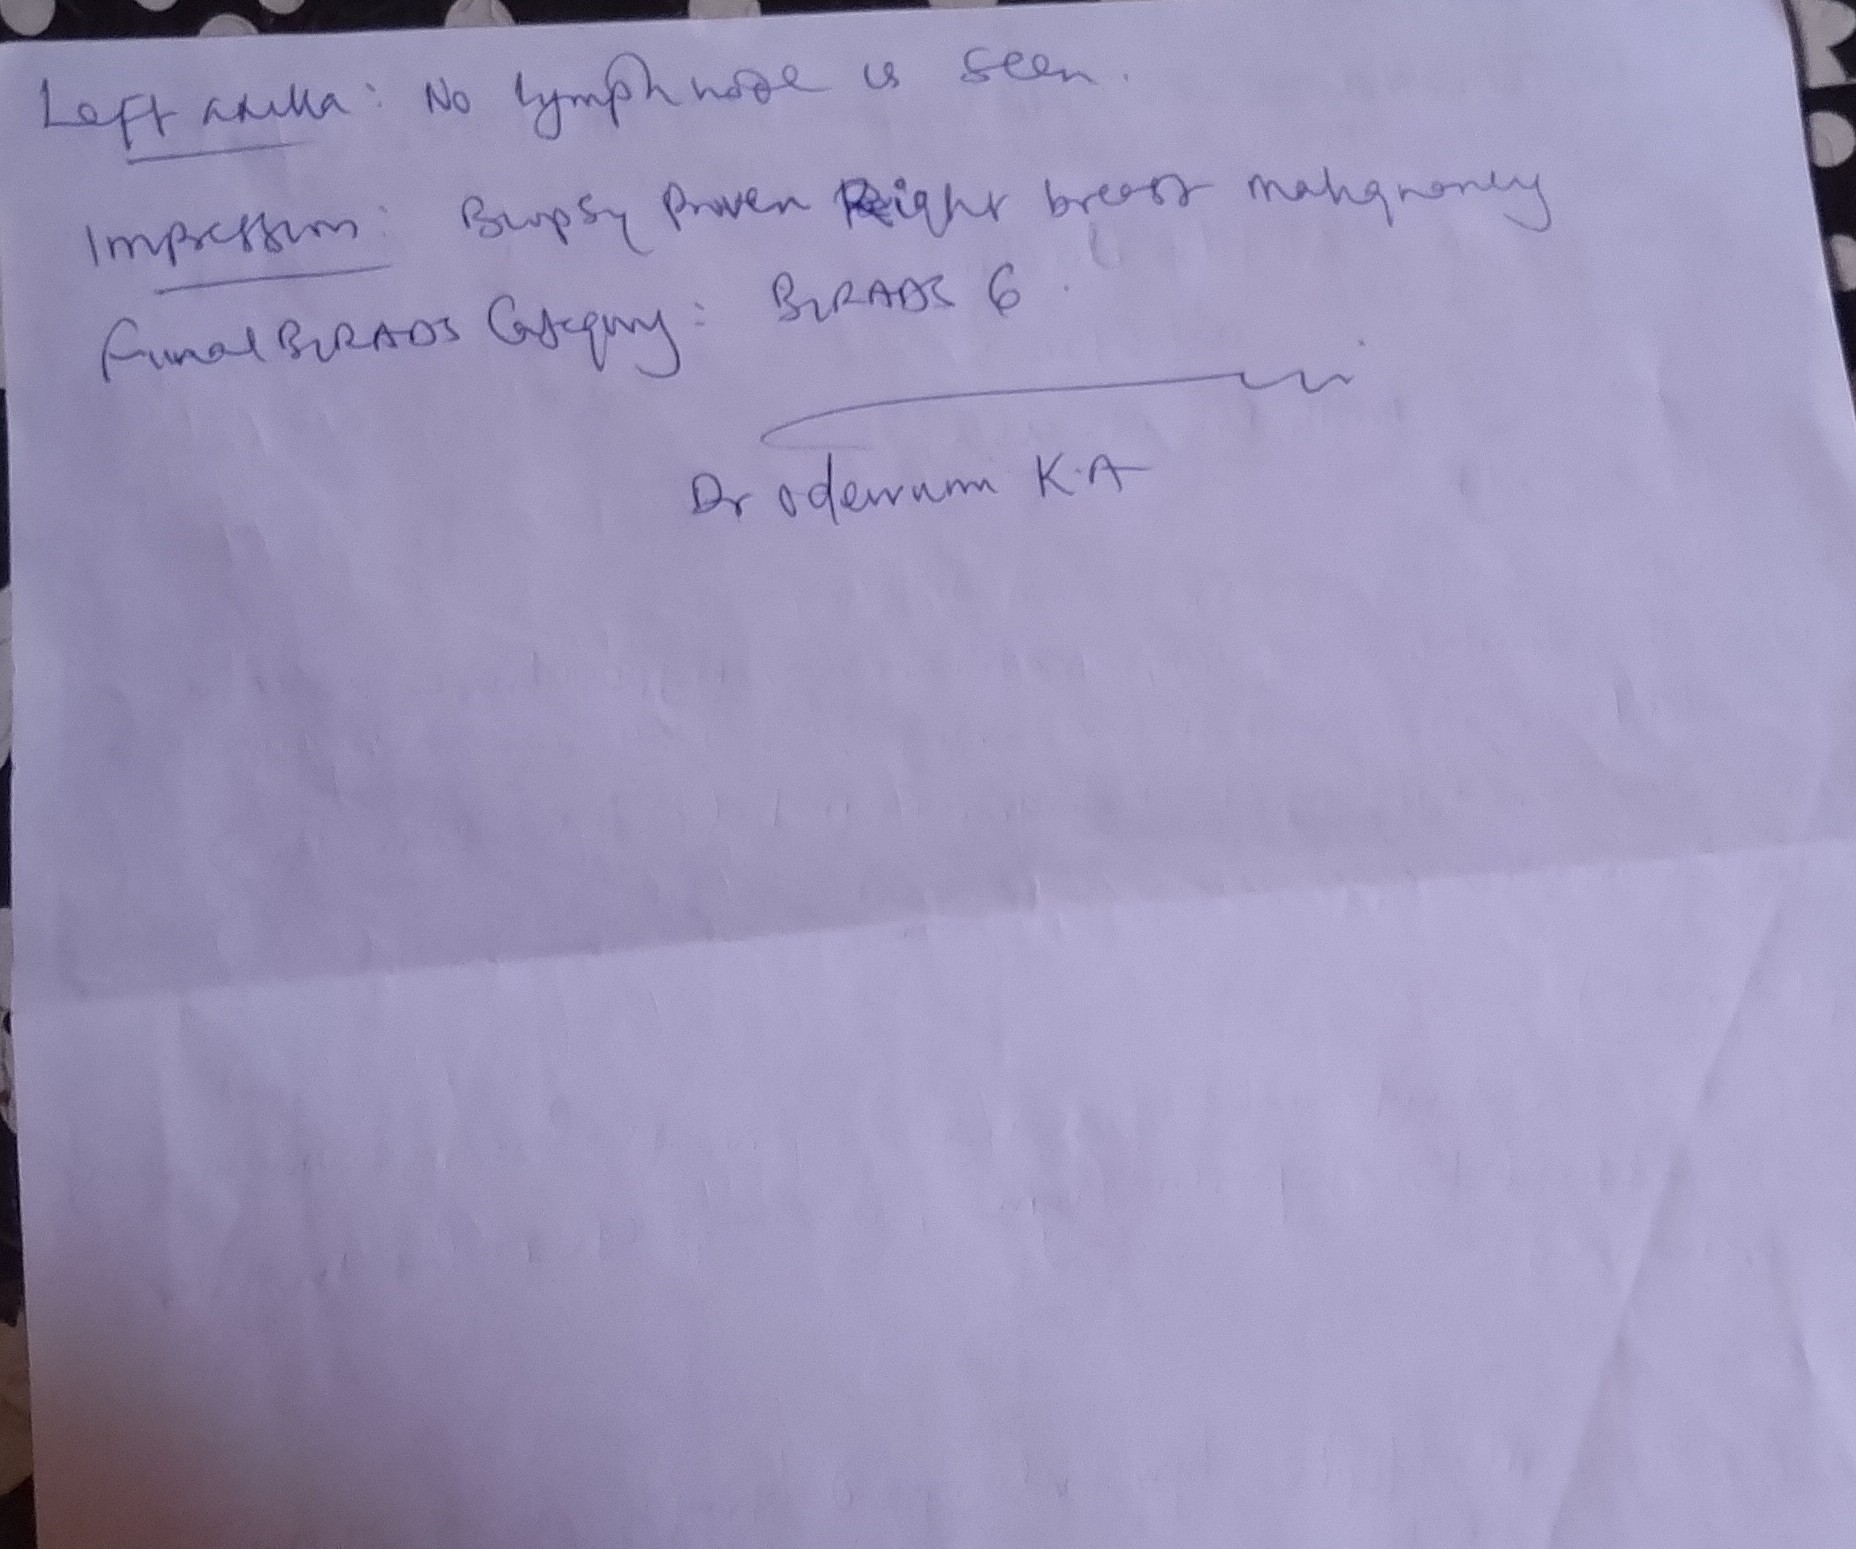 Left axilla: No lymph node is seen.
Impression: Biopsy Proven Right breast malignancy
Final BIRADS Category: BIRADS 6.
Dr Odewumi K.A